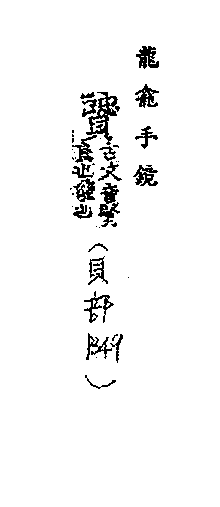 龍龕手鏡
古文音賢
良也能也
（貝部349）